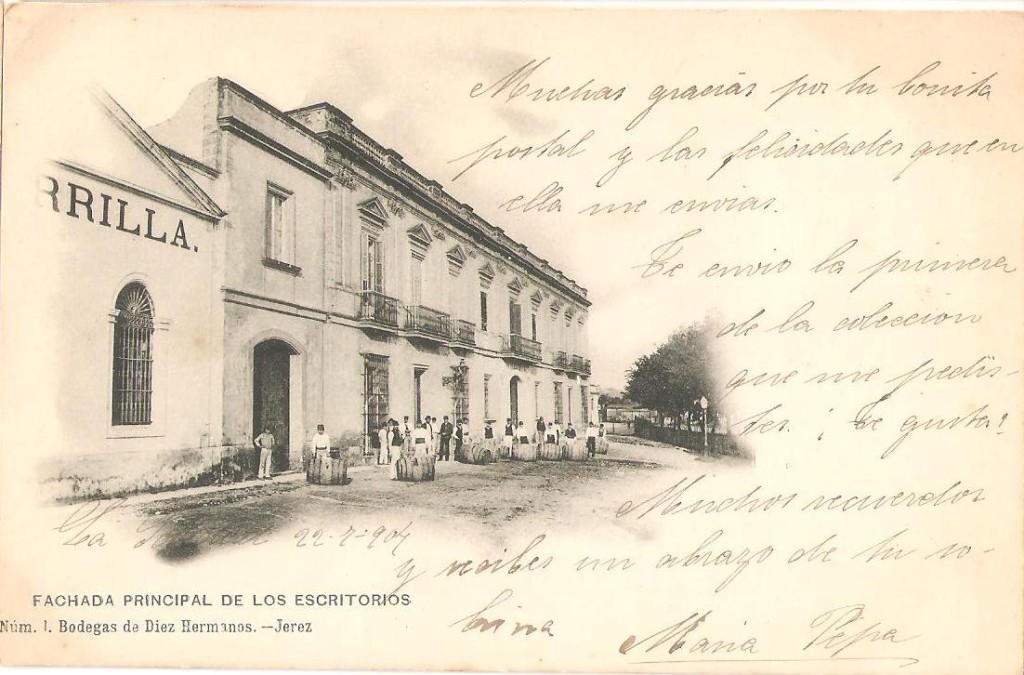 RRILLA.
Muchas gracias por tu bonita
postal y las felicidades que en
ella me envias.
Te envio la primera
de la coleccion
que me pedis-
tes. ¡Te gusta!
Muchos recuerdos
y recibes un abrazo de tu so-
brina
Maria Pepa
La 22-7-904
FACHADA PRINCIPAL DE LOS ESCRITORIOS
Núm. 1. Bodegas de Diez Hermanos.—Jerez